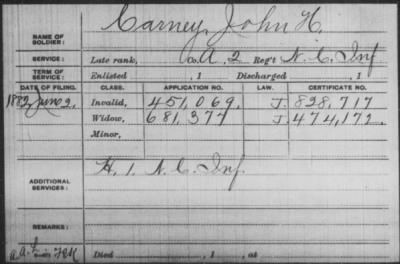 NAME OF SOLDIER: Carney, John H.
SERVICE: Late rank, Co. A, 2 Reg't N. C. Inf
TERM OF SERVICE: Enlisted , 1 Discharged , 1
DATE OF FILING. CLASS. APPLICATION NO. LAW. CERTIFICATE NO.
1882, June 2, Invalid, 451,069. J. 828,717
Widow, 681,377 J. 474,172.
Minor,
ADDITIONAL SERVICES: H. 1. N. C. Inf.
REMARKS:
Died , 1 , at